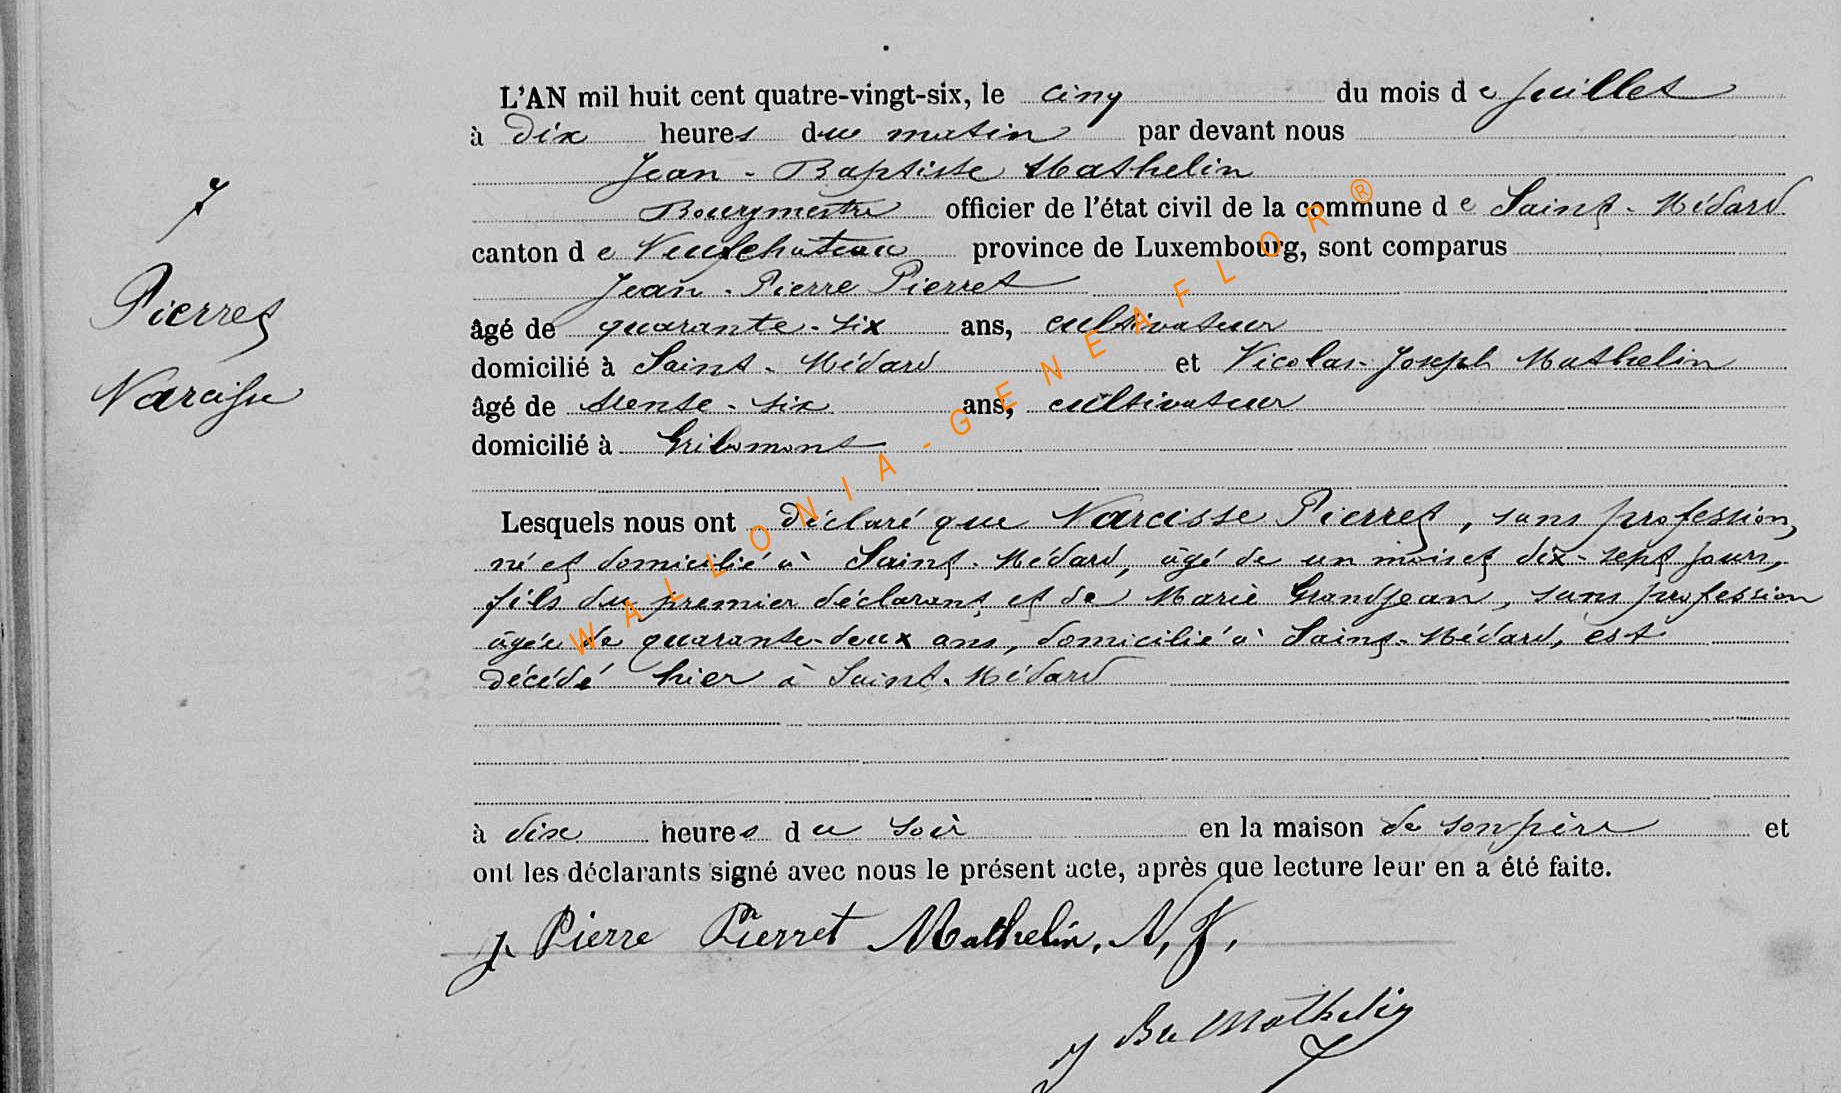 7
Pierret
Narcisse
L'AN mil huit cent quatre-vingt-six, le cinq du mois de Juillet
à dix heures du matin par devant nous
Jean-Baptiste Mathelin
Bourgmestre officier de l'état civil de la commune de Saint-Médard
canton de Neufchateau province de Luxembourg, sont comparus
Jean-Pierre Pierret
âgé de quarante-six ans, cultivateur
domicilié à Saint-Médard et Nicolas-Joseph Mathelin
âgé de trente-six ans, cultivateur
domicilié à Gribomont
Lesquels nous ont déclaré que Narcisse Pierret, sans profession,
né et domicilié à Saint-Médard, âgé de un mois et dix-sept jours,
fils du premier déclarant et de Marie Grandjean, sans profession
âgée de quarante-deux ans, domicilié à Saint-Médard, est
décédé hier à Saint-Médard
à dix heures du soir en la maison de son père et
ont les déclarants signé avec nous le présent acte, après que lecture leur en a été faite.
J. Pierre Pierret Mathelin, N, J,
J Bte Mathelin
WALLONIA-GENEAFLOR®